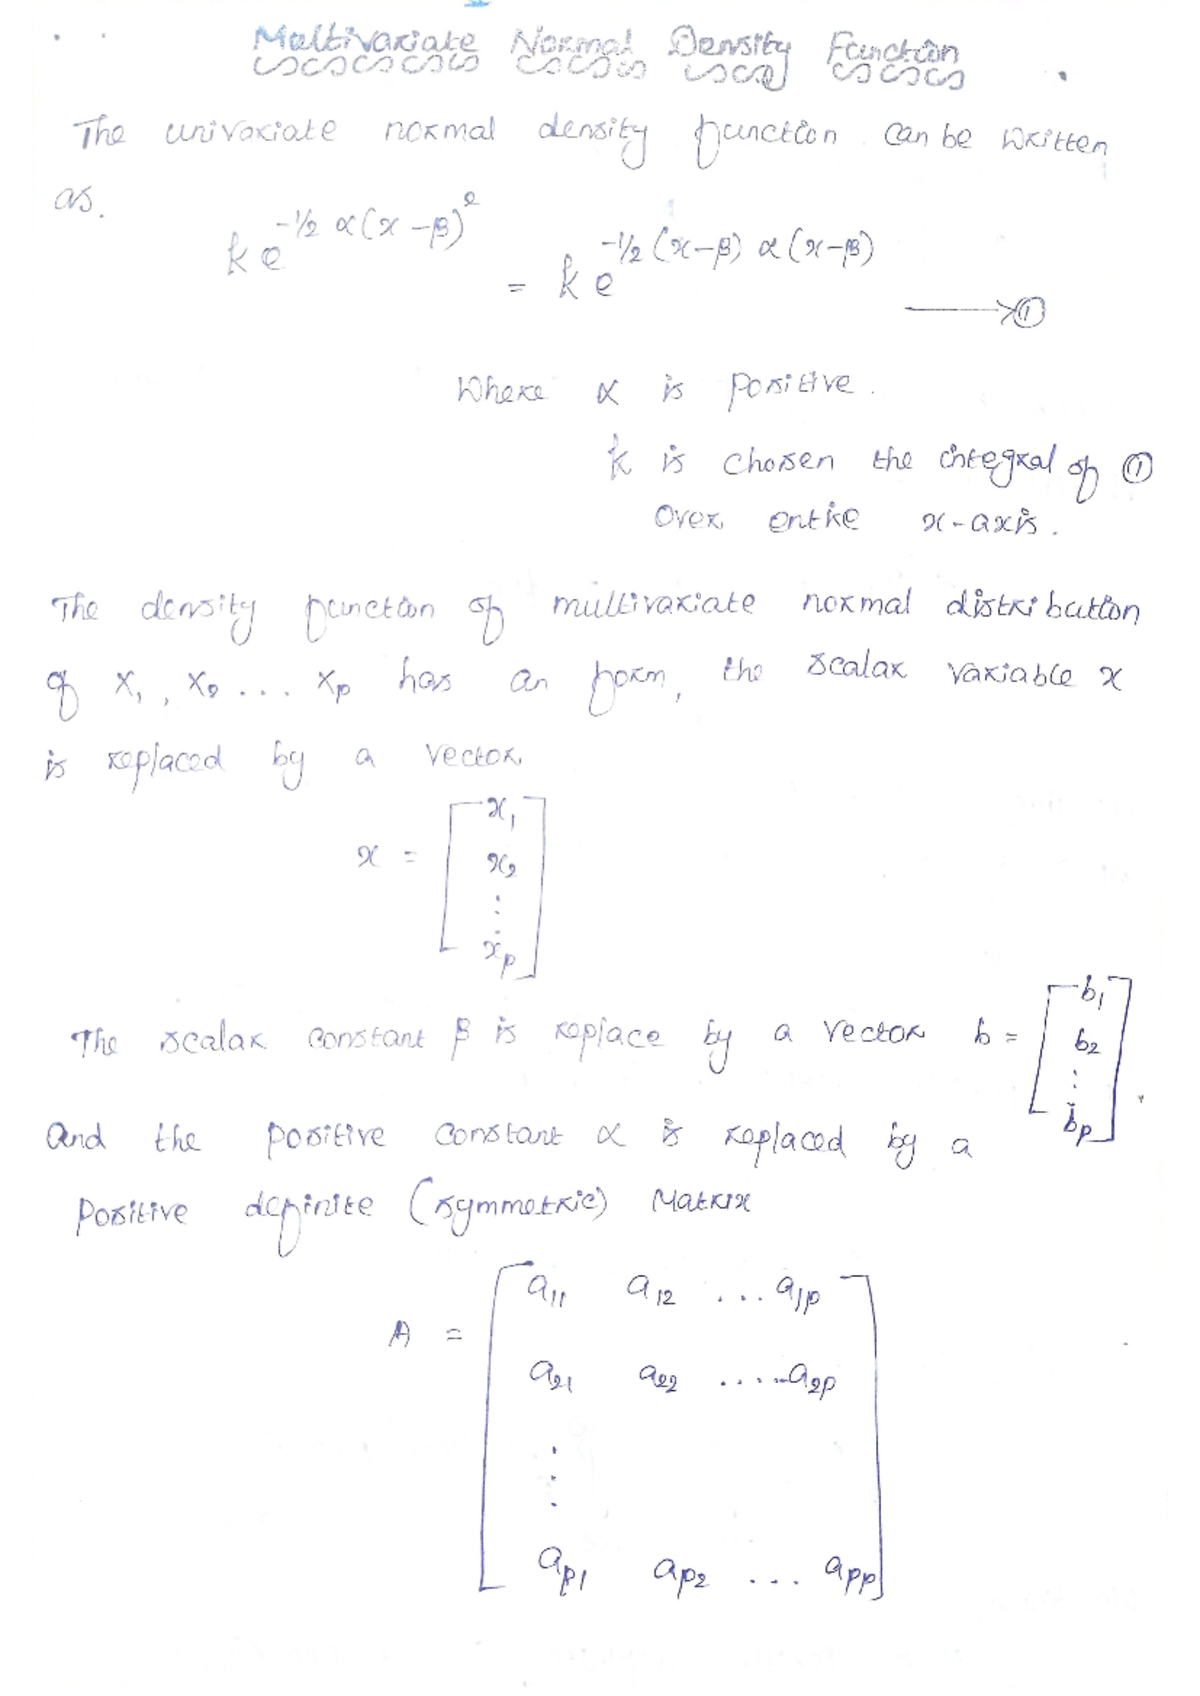 Multivariate Normal Density Function
The univariate normal density function can be written
as.
k e^{-1/2 α(x-β)^2}
= k e^{-1/2 (x-β) α (x-β)} ⟶ ①
Where α is positive.
k is chosen the integral of ①
Over entire x-axis.
The density function of multivariate normal distribution
of X₁, X₂ ... Xp has an form, the scalar variable x
is replaced by a vector
x = [x₁
x₂
⋮
xp]
The scalar constant β is replace by a vector b = [b₁
b₂
⋮
bp].
and the positive constant α is replaced by a
Positive definite (symmetric) Matrix
A = [a₁₁ a₁₂ ... a₁p
a₂₁ a₂₂ ..... a₂p
⋮
ap₁ ap₂ ... app]